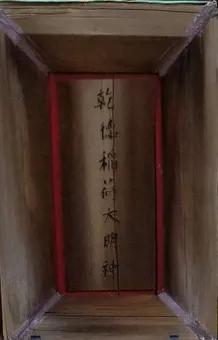 乾徳稲荷大明神